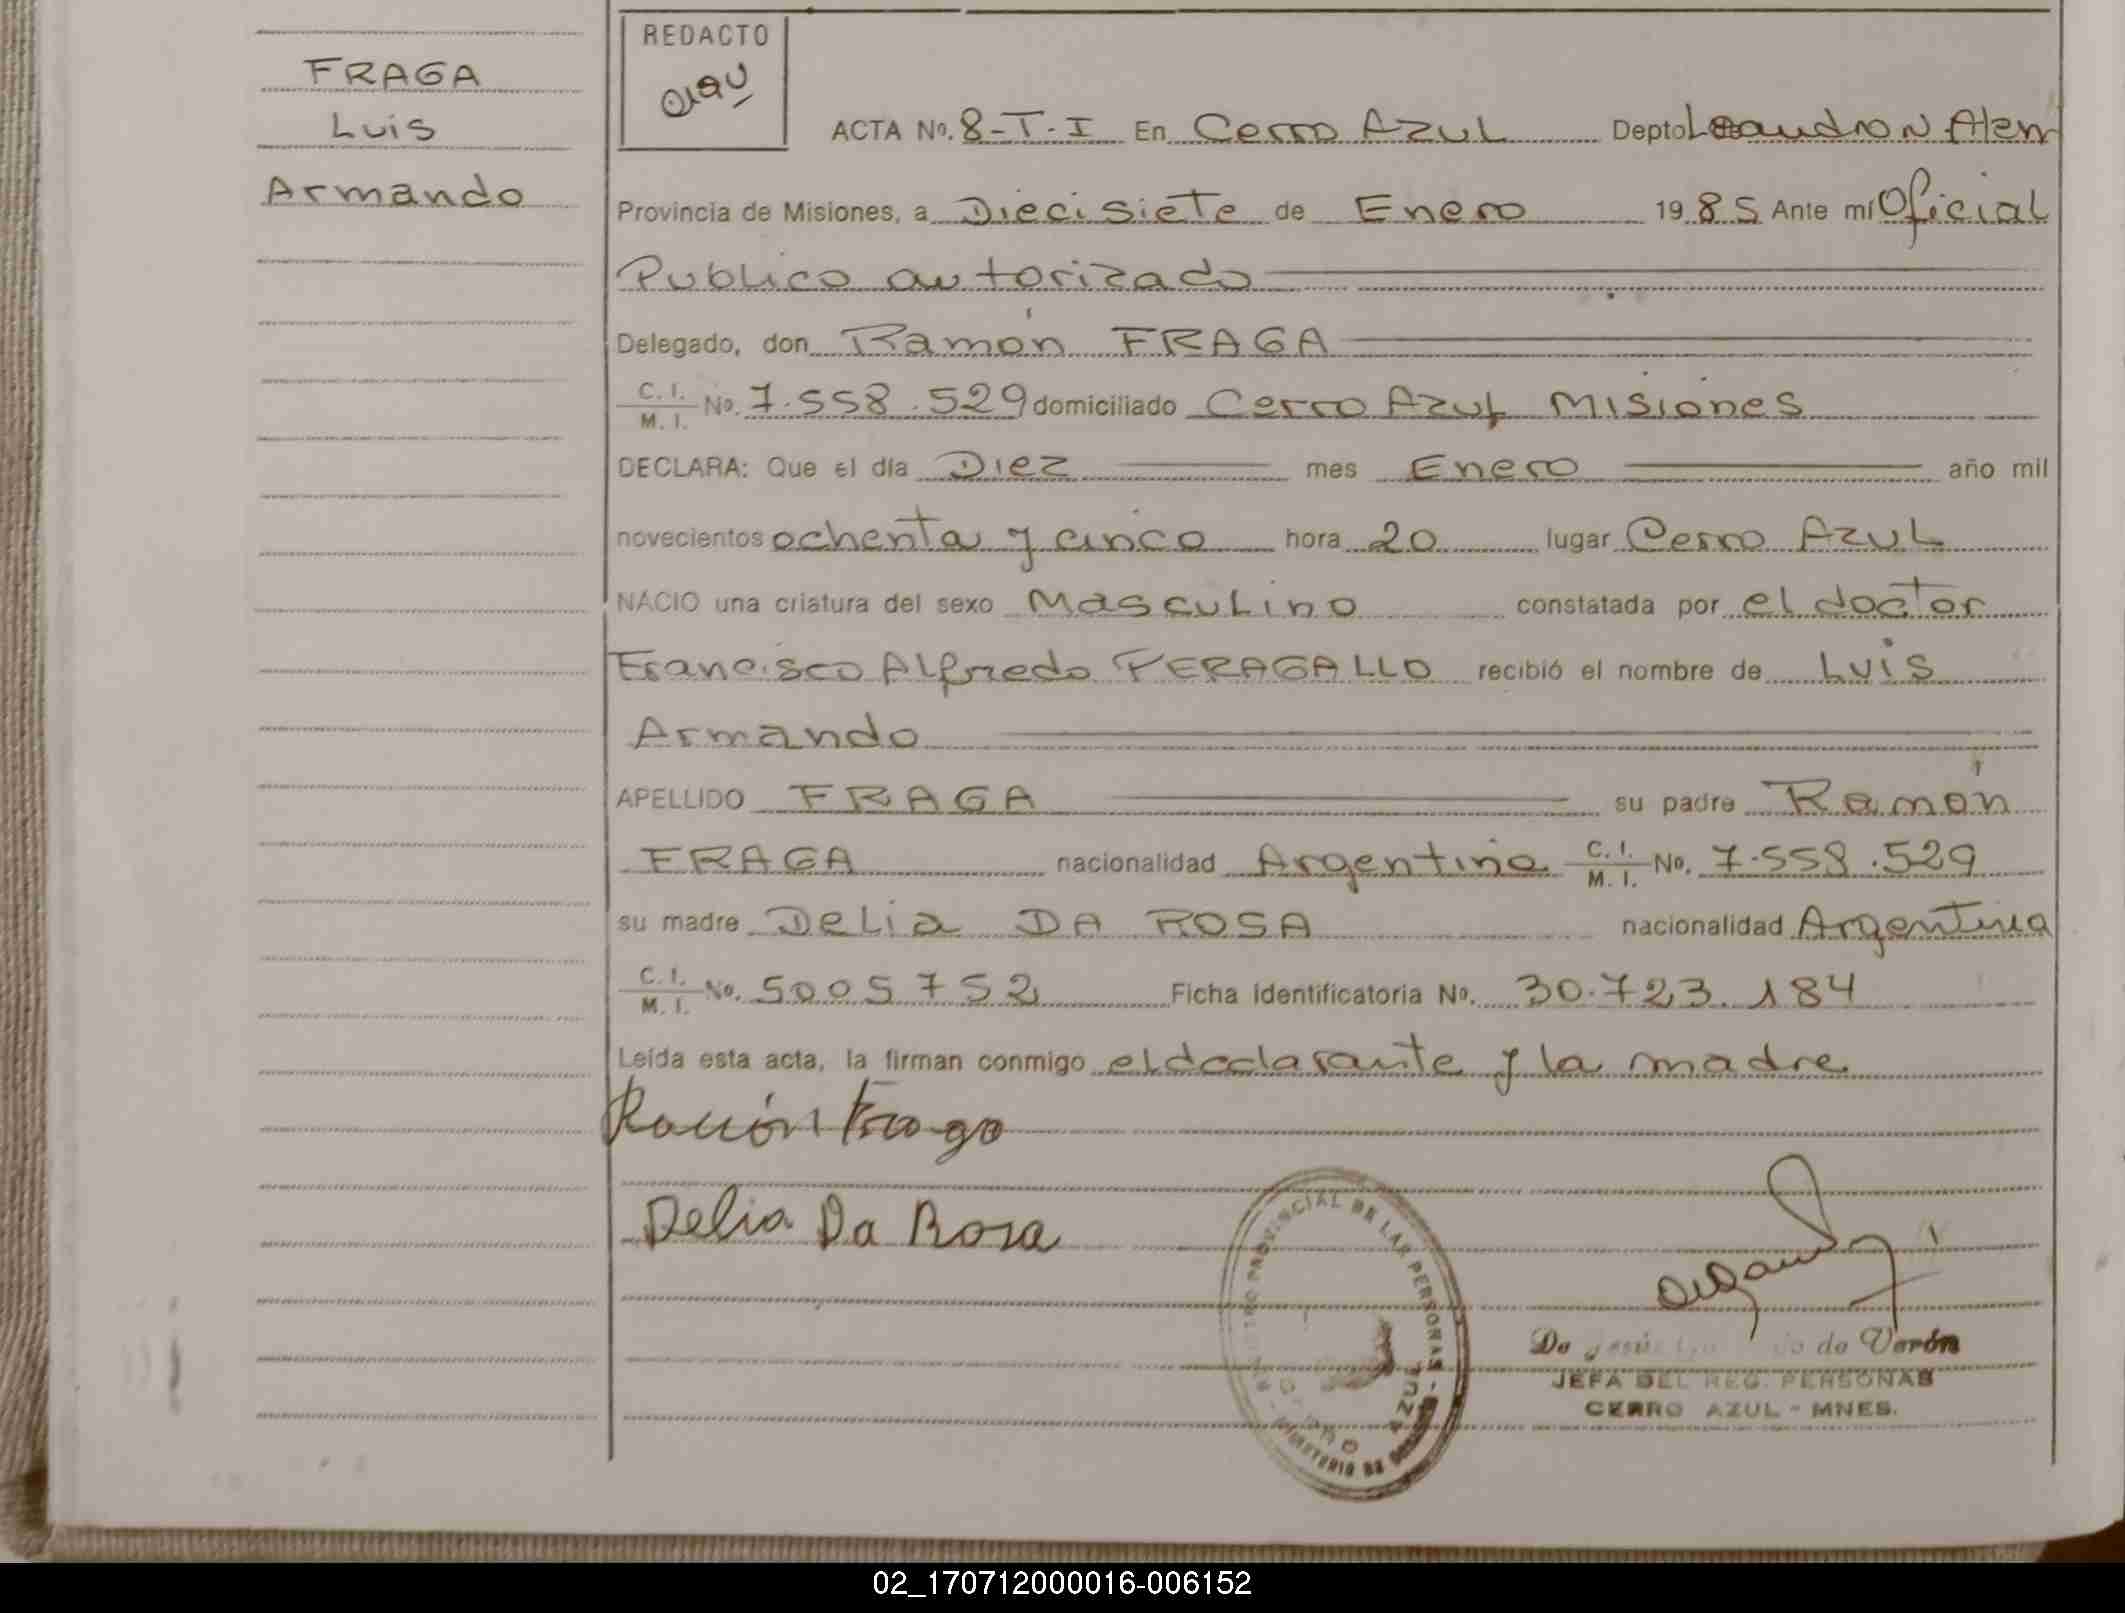 FRAGA
Luis
Armando
REDACTO
ACTA No. 8-T-I En Cerro Azul Depto Leandro N Alem
Provincia de Misiones, a Diecisiete de Enero 1985 Ante mi Oficial
Publico autorizado
Delegado, don Ramón FRAGA
C. I. / M. I. No. 7.558.529 domiciliado Cerro Azul Misiones
DECLARA: Que el día Diez mes Enero año mil
novecientos ochenta y cinco hora 20 lugar Cerro Azul
NACIO una criatura del sexo Masculino constatada por el doctor
Francisco Alfredo PERAGALLO recibió el nombre de Luis
Armando
APELLIDO FRAGA su padre Ramón
FRAGA nacionalidad Argentina C. I. / M. I. No. 7.558.529
su madre Delia DA ROSA nacionalidad Argentina
C. I. / M. I. No. 5005752 Ficha identificatoria No. 30.723.184
Leída esta acta, la firman conmigo el declarante y la madre
Ramón Fraga
Delia Da Rosa
PROVINCIAL DE LAS PERSONAS
de Verón
JEFA DEL REG. PERSONAS
CERRO AZUL - MNES.
02_170712000016-006152